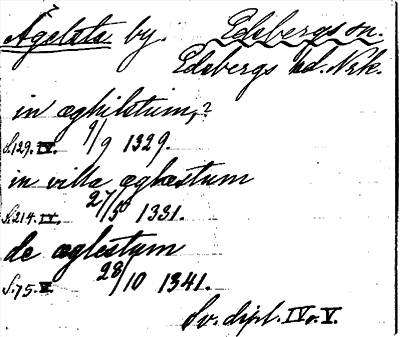 Ågelsta by. Edsbergs sn.
Edsbergs hd. Nrk.
in æghilstum,?
S.129. IV. 9/9 1329.
in villa æghæstum
S.214. IV. 27/10 1331.
de æglestum
S.75. V. 28/10 1341.
Sv. dipl. IV o. V.